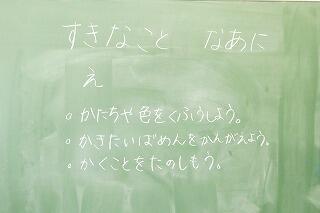 すきなこと なあに
え
。かたちや色をくふうしよう。
。かきたいばめんをかんがえよう。
。かくことをたのしもう。